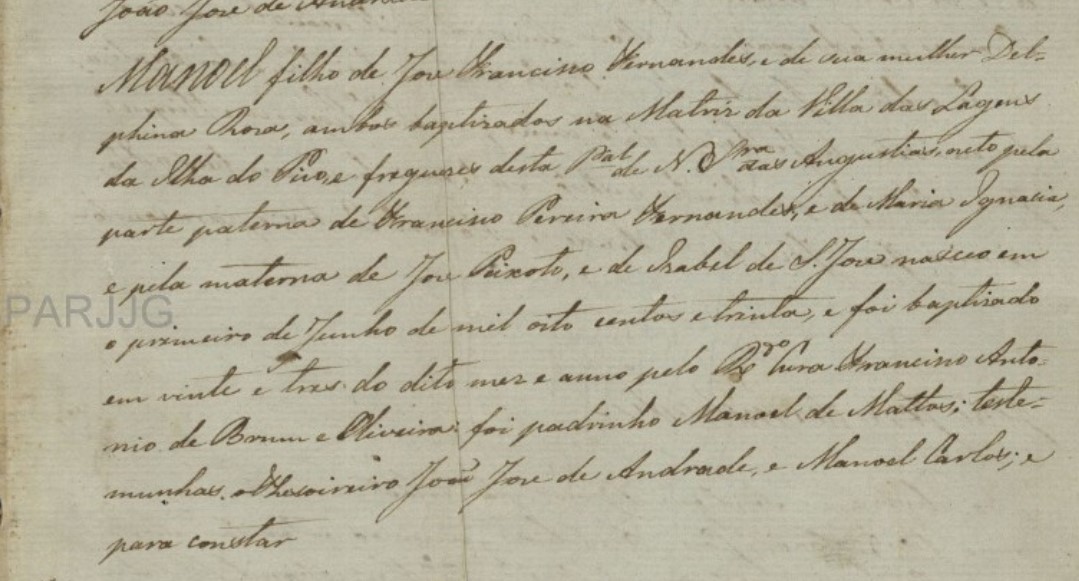 João Jose de Andrade
Manoel filho de Jose Francisco Fernandes, e de sua mulher Del-
phina Rosa, ambos baptizados na Matriz da Villa das Lagens
da Ilha do Pico, e freguezes desta P.al de N. S.ra das Angustias, neto pela
parte paterna de Francisco Pereira Fernandes, e de Maria Ignacia,
e pela materna de Jose Peixoto, e de Izabel de S. Jose nasceo em
o primeiro de Junho de mil oito centos e trinta, e foi baptizado
em vinte e tres do dito mez e anno pelo R.do Cura Francisco Anto-
nio de Brum e Oliveira: foi padrinho Manoel de Mattos; teste-
munhas, o Thesoireiro João Jose de Andrade, e Manoel Carlos; e
para constar
PARJJG